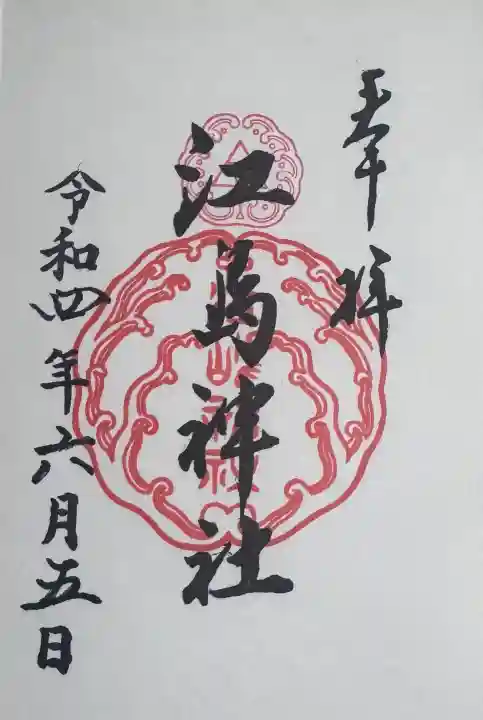 奉拝
江島神社
令和四年六月五日